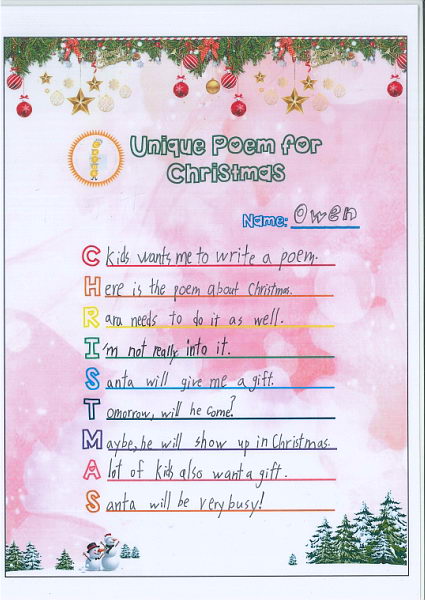 Unique Poem for
Christmas
Name: Owen
Ckids wants me to write a poem.
Here is the poem about Christmas.
Rara needs to do it as well.
I'm not really into it.
Santa will give me a gift.
Tomorrow, will he come?
Maybe, he will show up in Christmas.
A lot of kids also want a gift.
Santa will be very busy!